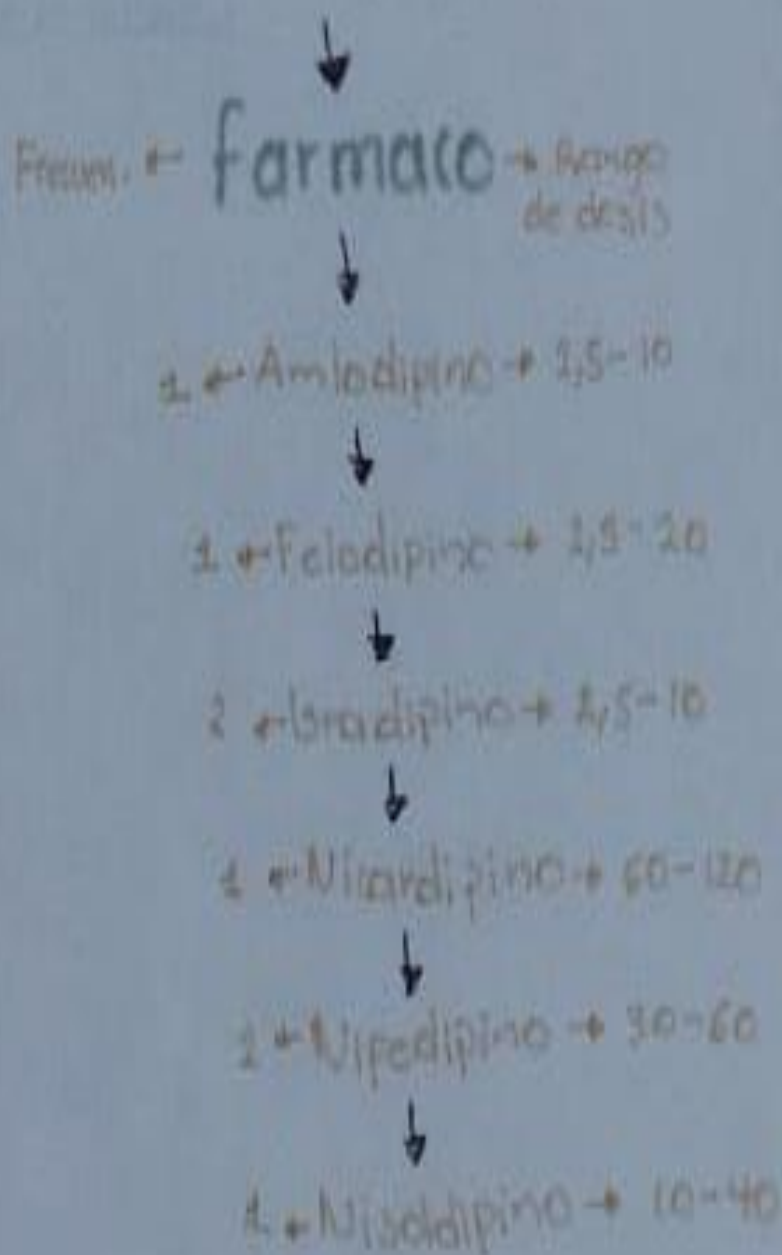 Frecuen. ← farmaco → Rango
de desis
1 ← Amlodipino → 2,5-10
1 ← Felodipino → 2,5-20
2 ← Isradipino → 2,5-10
2 ← Nicardipino → 60-120
1 ← Nifedipino → 30-60
1 ← Nisoldipino → 10-40